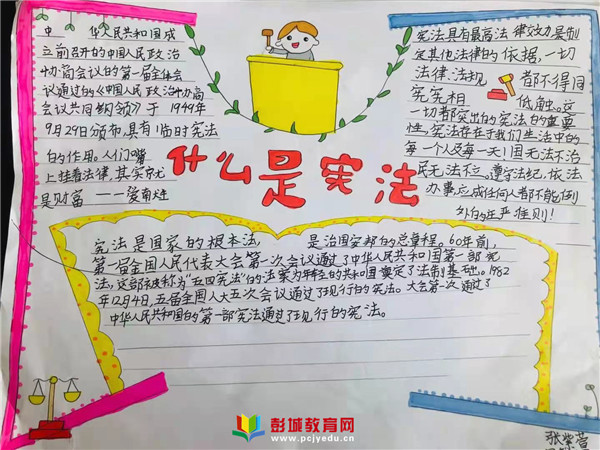 中 华人民共和国成
立前召开的中国人民政治
协商会议的第一届全体会
议通过的《中国人民政治协商
会议共同纲领》于1949年
9月29日颁布,具有临时宪法
的作用。人们嘴
上挂着法律,其实
是财富——爱
什么是宪法
宪法具有最高法律效力是制
定其他法律的依据,一切
法律、法规 都不得同
宪 相 低触。这
一切都突出的宪法的重要
性,宪法存在于我们生活中的
每一个人及每一天!国无法不治
民无法不立。遵守法纪,依法
办事应成任何人都不能例
外的庄严准则!
宪法是国家的根本法, 是治国安邦的总章程。60年前,
第一届全国人民代表大会第一次会议通过了中华人民共和国第一部宪
法,这部被称为"五四宪法"的法案为年轻的共和国奠定了法制基础。1982
年12月4日,五届全国人大五次会议通过了现行的宪法。大会第一次通过了
中华人民共和国的第一部宪法通过了现行的宪法。
彭城教育网
www.pcjyedu.cn
张紫萱